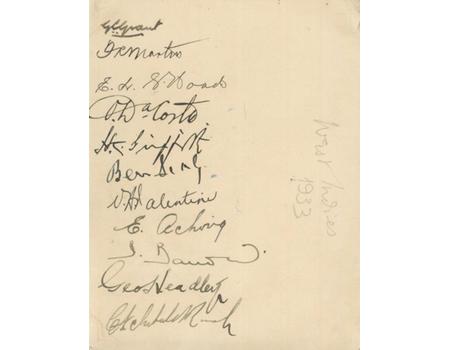 G.C. Grant
F R Martin
E. L. G. Hoad
O. Da Costa
H.C. Griffith
Ben Sealy
V A Valentine
E. Achong
I. Barrow.
Geo Headley
C A Wiles
West Indies
1933